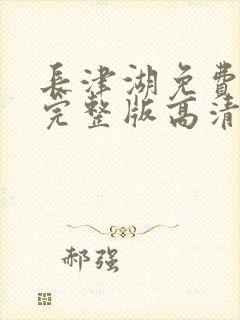 長津湖免費
完整版高清
郝强